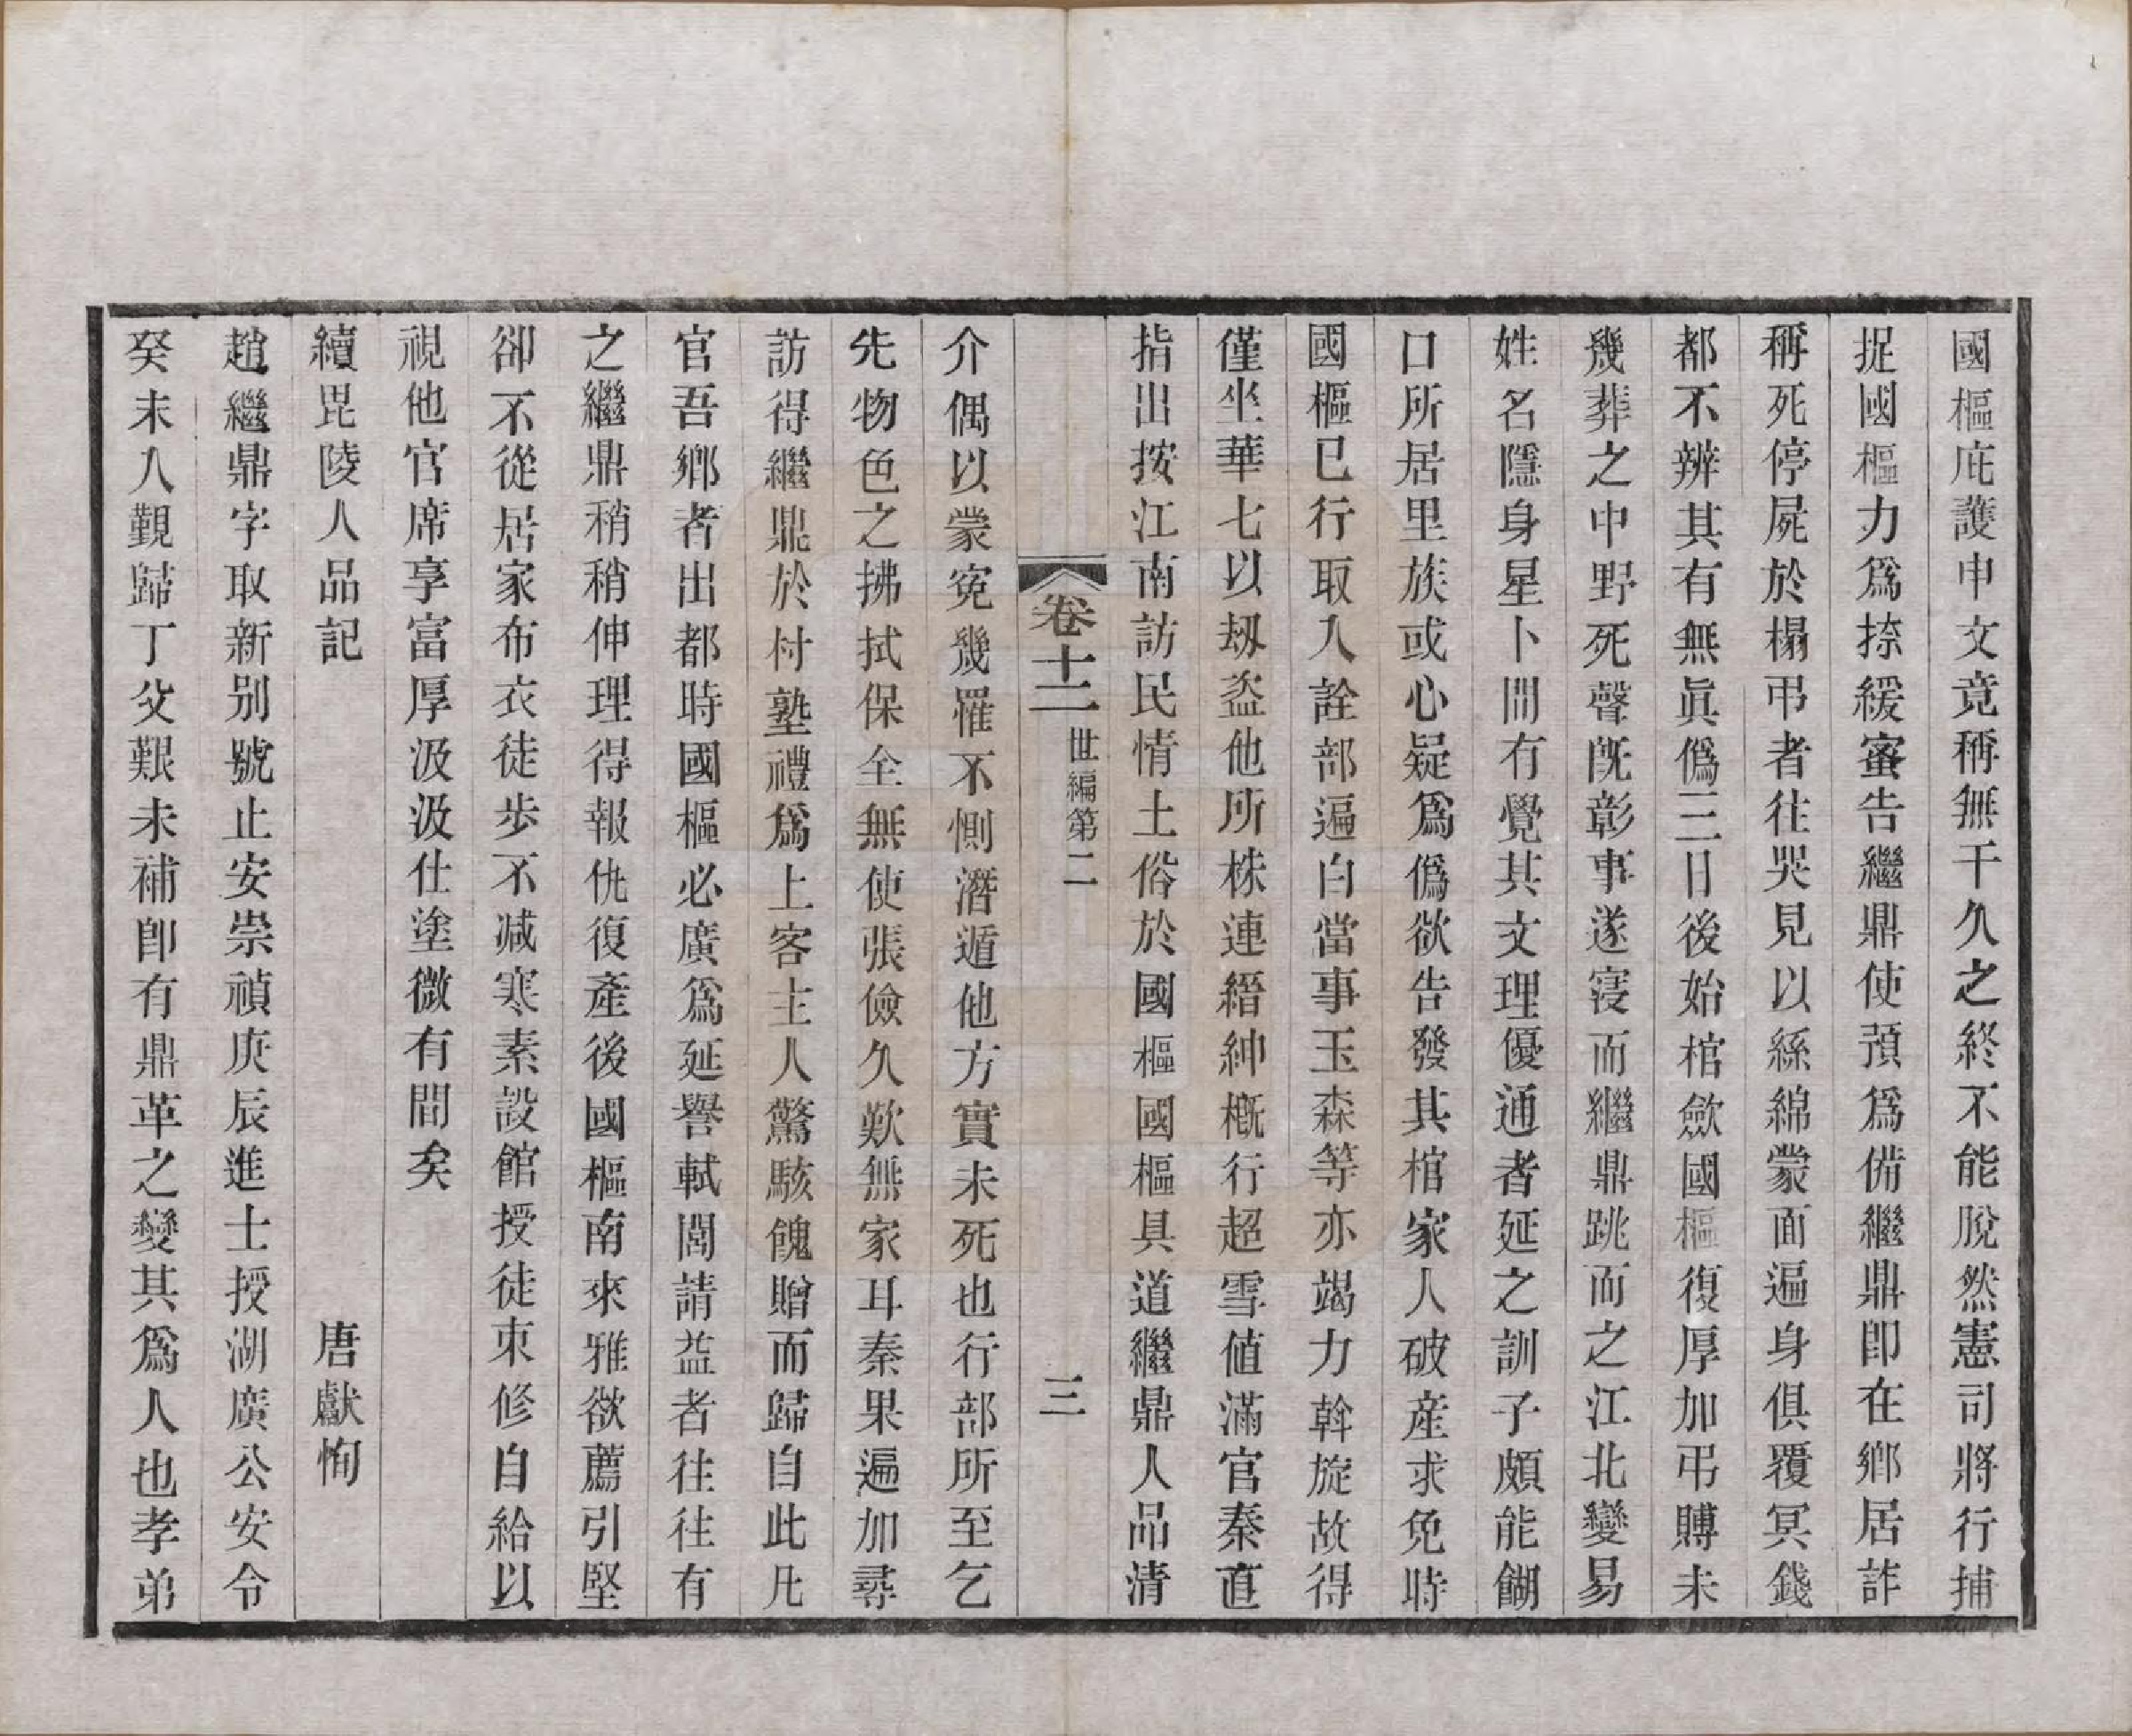 國樞庇護申文竟稱無干久之終不能脫然憲司將行捕
捉國樞力爲捺緩蜜告繼鼎使預爲備繼鼎卽在鄉居詐
稱死停屍於榻弔者往哭見以絲綿蒙面遍身俱覆冥錢
都不辨其有無眞僞三日後始棺歛國樞復厚加弔賻未
幾葬之中野死聲旣彰事遂寖而繼鼎跳而之江北變易
姓名隱身星卜間有覺其文理優通者延之訓子頗能餬
口所居里族或心疑爲僞欲告發其棺家人破産求免時
國樞已行取入詮部遍白當事玉森等亦竭力斡旋故得
僅坐華七以刼盜他所株連縉紳槪行超雪値滿官秦直
指出按江南訪民情土俗於國樞國樞具道繼鼎人品清
卷十二 世編第二 三
介偶以蒙寃幾罹不惻潛遁他方實未死也行部所至乞
先物色之拂拭保全無使張儉久歎無家耳秦果遍加尋
訪得繼鼎於村塾禮爲上客主人驚駭餽贈而歸自此凡
官吾鄉者出都時國樞必廣爲延譽軾閭請益者往往有
之繼鼎稍稍伸理得報仇復產後國樞南來雅欲薦引堅
卻不從居家布衣徒步不減寒素設館授徒束修自給以
視他官席享富厚汲汲仕塗微有間矣
續毘陵人品記 唐獻恂
趙繼鼎字取新别號止安崇禎庚辰進士授湖廣公安令
癸未入覲歸丁父艱未補卽有鼎革之變其爲人也孝弟